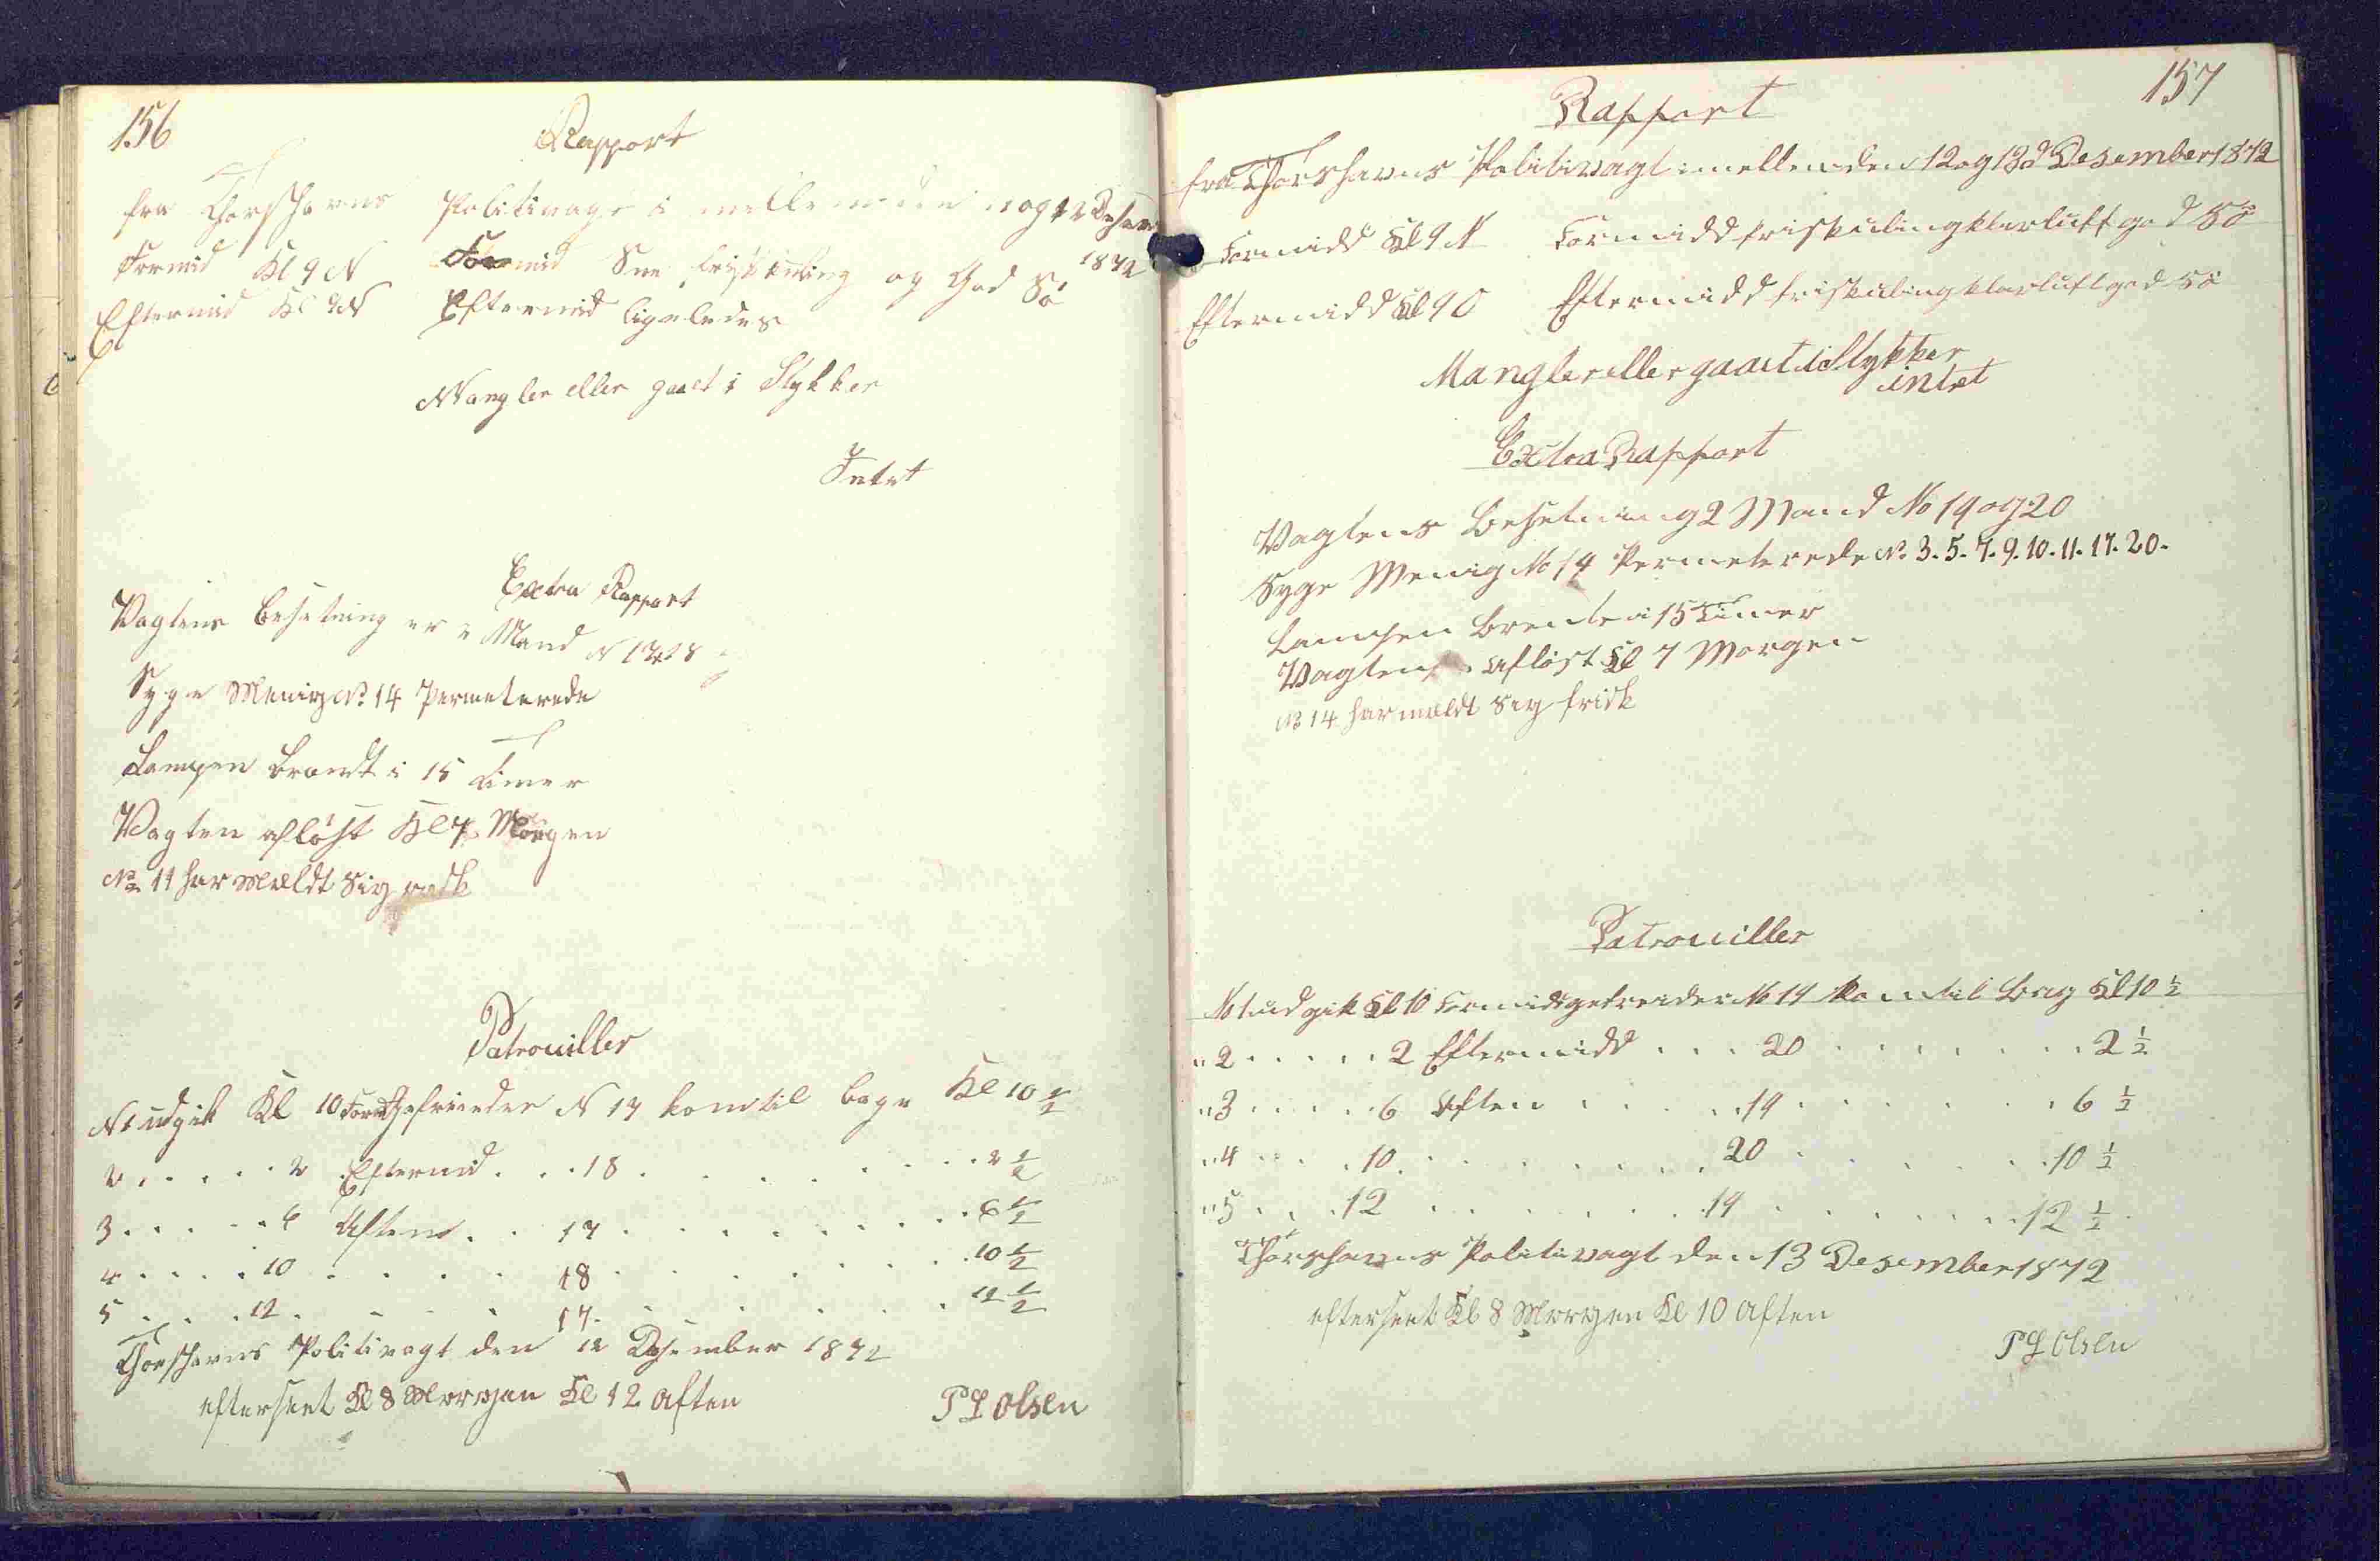 156
Rapport
fra Thorshavns Politivagt i mellem den 11 og 12 Desem
1872
Formid Kl 9 N Formid Sne friskkuling og God Sö
Eftermid Kl 9 N Eftermid ligeledes
Mangler eller gaaet i Stykker
Intet
Extra Rapport
Vagtens Besetning er 2 Mand N 17 18
Syge Menig No 14 Permeterede
Lampen Brændt i 15 Timer
Vagten aflöst Kl 7 Morgen
No 11 har Meldt Sig rask
Patrouiller
N 1 udgik Kl 10 Formd Gefreider N 17 kom til bage Kl 10 1/2
2 . . . . . 2 Eftermid . . . 18 . . . . . . . . 2 1/2
3 . . . . . 6 Aften . . 17 . . . . . . . . 6 1/2
4 . . . . 10 . . . . 18 . . . . . . . 10 1/2
5 . . . . 12 . . . . 17 . . . . . . . 12 1/2
Thorshavns Politivagt den 12 Desember 1872
efterseet Kl 8 Morgen Kl 12 Aften
P L Olsen
157
Rapport
fra Thorshavns Politivagt imellem den 12 og 13 d Desember 1872
Formidd Kl 9 N Formidd friskuling klarluft god Sö
Eftermidd Kl 9 O Eftermidd friskuling klarluft god Sö
Mangler eller gaaet i Stykker
intet
Extra Rapport
Vagtens Besetning 2 Mand No 19 og 20
Syge Menig No 14 Permeterede No 3. 5. 7. 9. 10. 11. 17. 20.
Lampen Brendte i 15 Timer
Vagten Aflöst Kl 7 Morgen
No 14 har meldt Sig frisk
Patrouiller
No 1 udgik Kl 10 Formidd gefreider No 19 kom til Bag Kl 10 1/2
" 2 . . . . . 2 Eftermidd . . . 20 . . . . . . . 2 1/2
" 3 . . . . . 6 Aften . . . . . 19 . . . . . . . 6 1/2
" 4 . . . . 10 . . . . . . . . 20 . . . . . . 10 1/2
" 5 . . . 12 . . . . . . . 19 . . . . . . . 12 1/2
Thorshavns Politivagt den 13 Desember 1872
efterseet Kl 8 Morgen Kl 10 Aften
P L Olsen